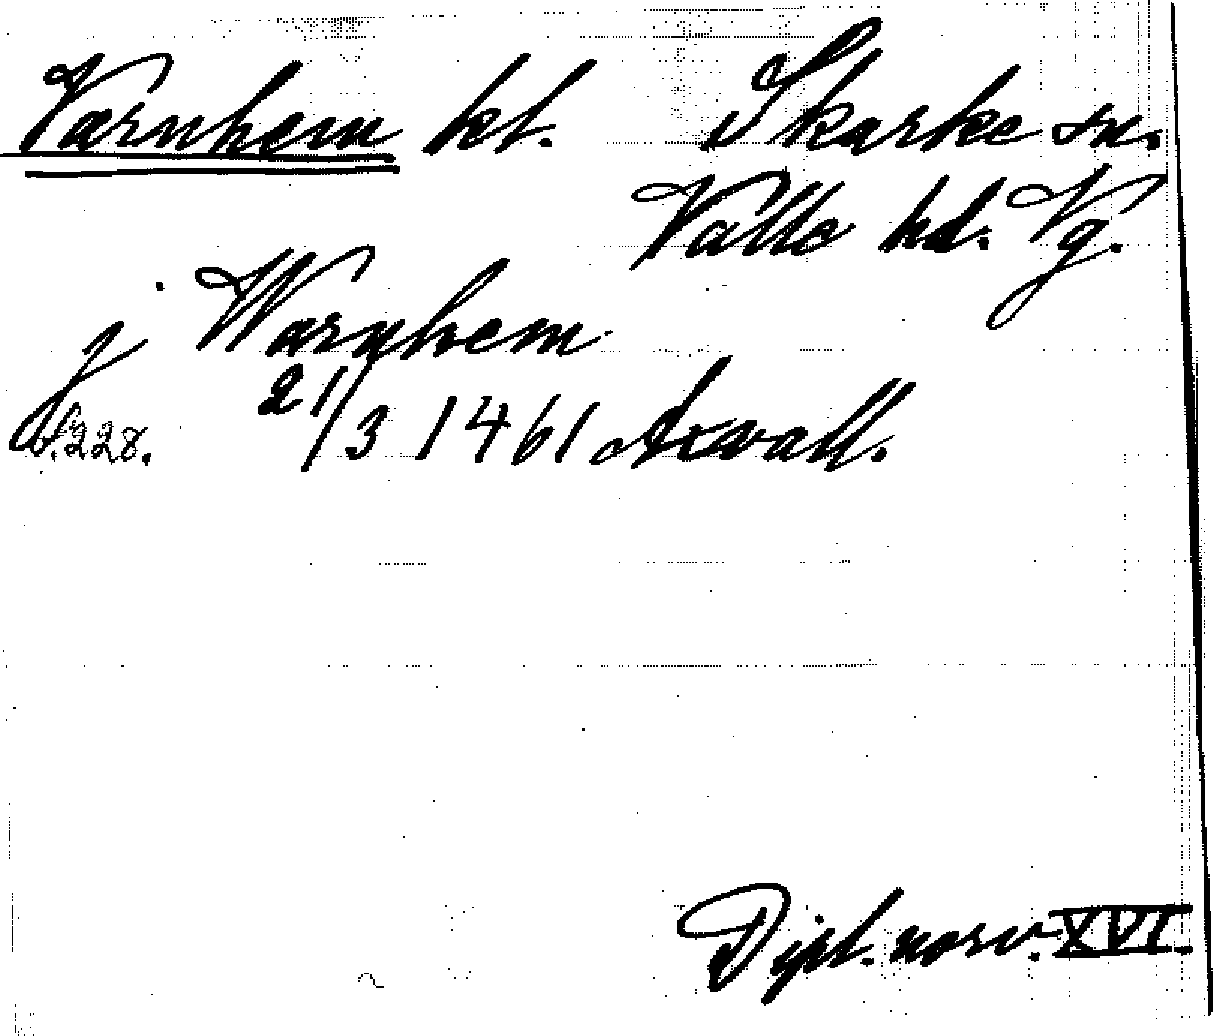 Varnhem kl. Skarke sn.
Valle hd. Vg.
j Warnhem
s. 228. 21/3 1461 Axvall.
Dipl. norv. XVI